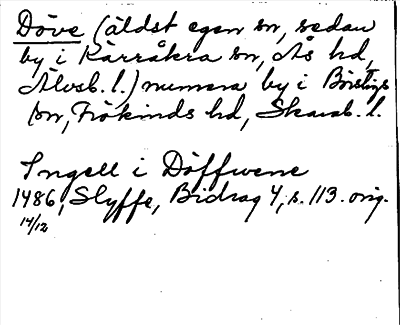 Döve (äldst egen sn, sedan
by i Kärråkra sn, Ås hd,
Älvsb. l.) numera by i Börstigs
sn, Frökinds hd, Skarab. l.
Ingell i Döffwene
1486, Styffe, Bidrag 4, s. 113. orig.
14/12